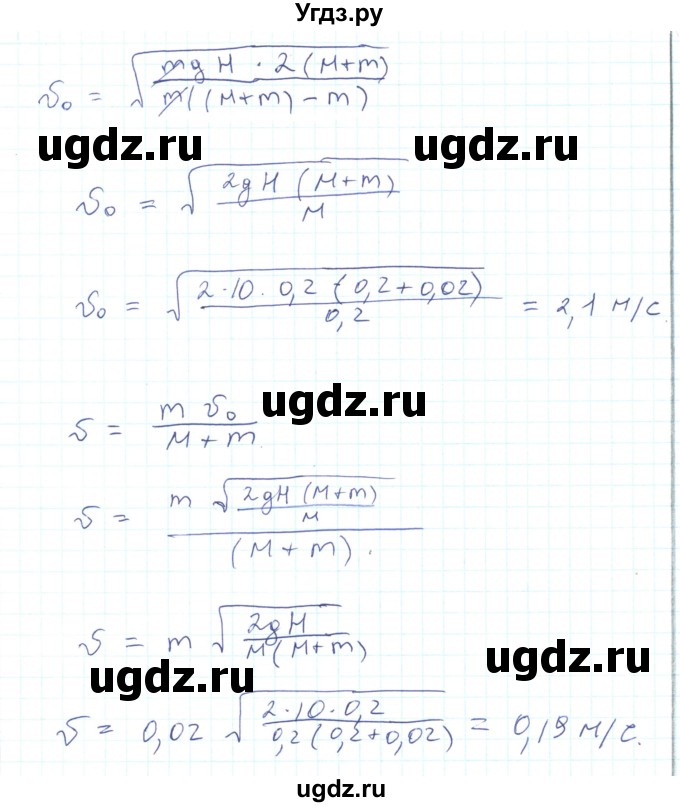 Угдз.ру
v₀ = √(mgH · 2(M+m) / m((M+m) − m))
ugdz.ru ugdz.ru
v₀ = √(2gH(M+m) / M)
v₀ = √(2·10·0,2(0,2+0,02) / 0,2) = 2,1 м/с.
ugdz.ru
v = m v₀ / M+m
v = m √(2gH(M+m) / M) / (M+m).
v = m √(2gH / M(M+m))
ugdz.ru ugdz.ru
v = 0,02 √(2·10·0,2 / 0,2(0,2+0,02)) = 0,19 м/с.
ugdz.ru